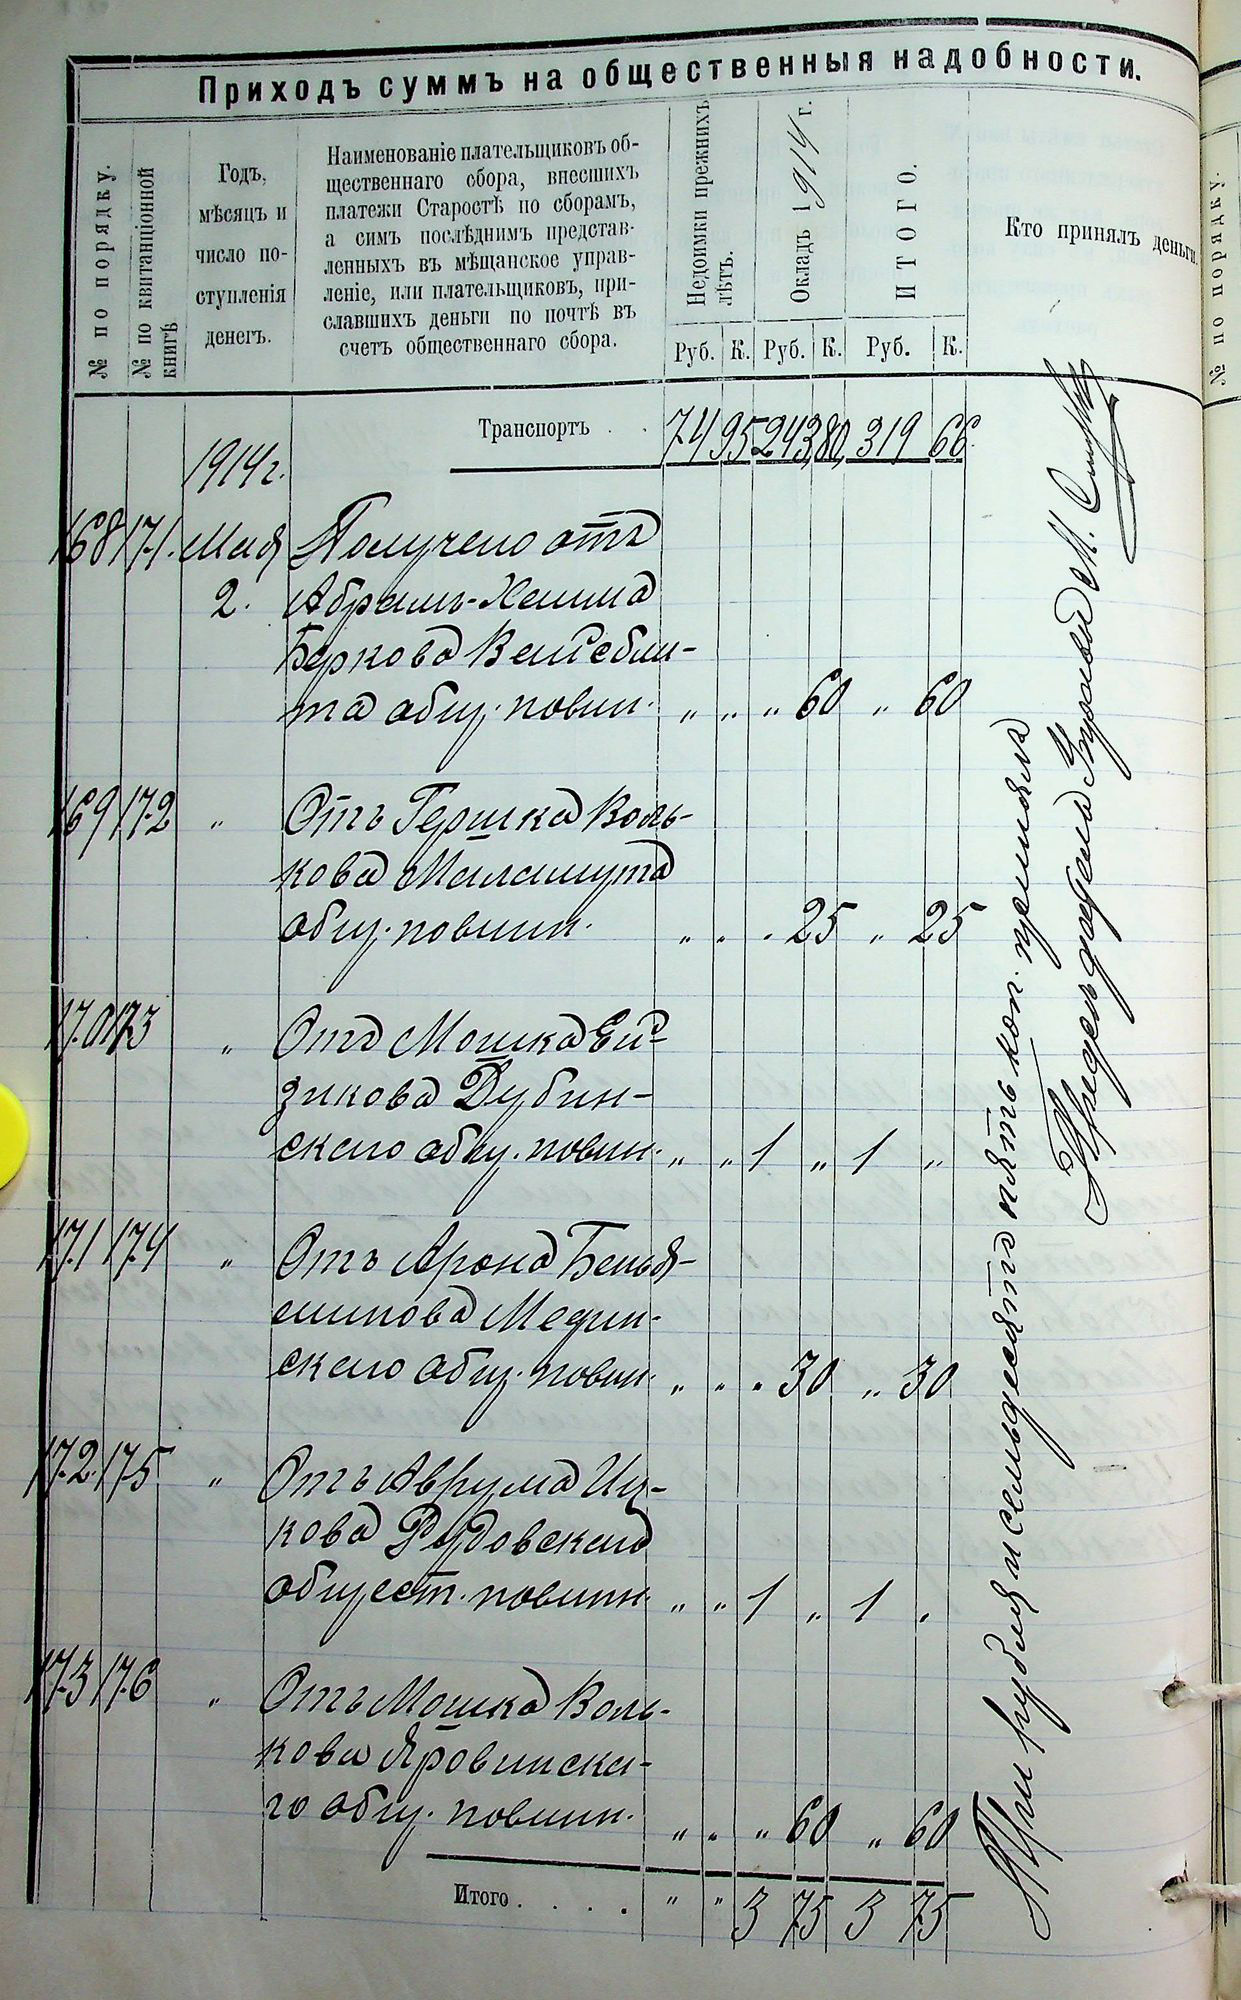 Приходъ суммъ на общественныя надобности.
№ по порядку.
№ по квитанціонной книгѣ
Годъ,
мѣсяцъ и
число по-
ступленія
денегъ.
Наименованіе плательщиковъ об-
щественнаго сбора, внесшихъ
платежи Старостѣ по сборамъ,
а симъ послѣднимъ представ-
ленныхъ въ мѣщанское управ-
леніе, или плательщиковъ, при-
славшихъ деньги по почтѣ въ
счетъ общественнаго сбора.
Недоимки прежнихъ
лѣтъ.
Окладъ 1914 г.
ИТОГО.
Кто принялъ деньги.
Руб. К. Руб. К. Руб. К.
Транспортъ . . 74 95 243 80 319 66
1914 г.
168 171. Мая Получено отъ
2. Абрамъ-Хаима
Беркова Вайсбли-
та общ. повин. " " " 60 " 60
169 172 " Отъ Гершка Воль-
кова Маламута
общ. повин. " " " 25 " 25
170 173 " Отъ Мошка Ей-
зикова Дубин-
скаго общ. повин. " " 1 " 1 "
171 174 " Отъ Арона Бенья-
минова Медин-
скаго общ. повин. " " " 30 " 30
172 175 " Отъ Аврума Иц-
кова Рудовскаго
общест. повинн. " " 1 " 1 "
173 176 " Отъ Мошка Воль-
кова Яровинска-
го общ. повинн. " " " 60 " 60
Итого . . . . " " 3 75 3 75
Три рубля и семьдесятъ пять коп. приняла
Предсѣдатель Управы М.
№ по порядку.